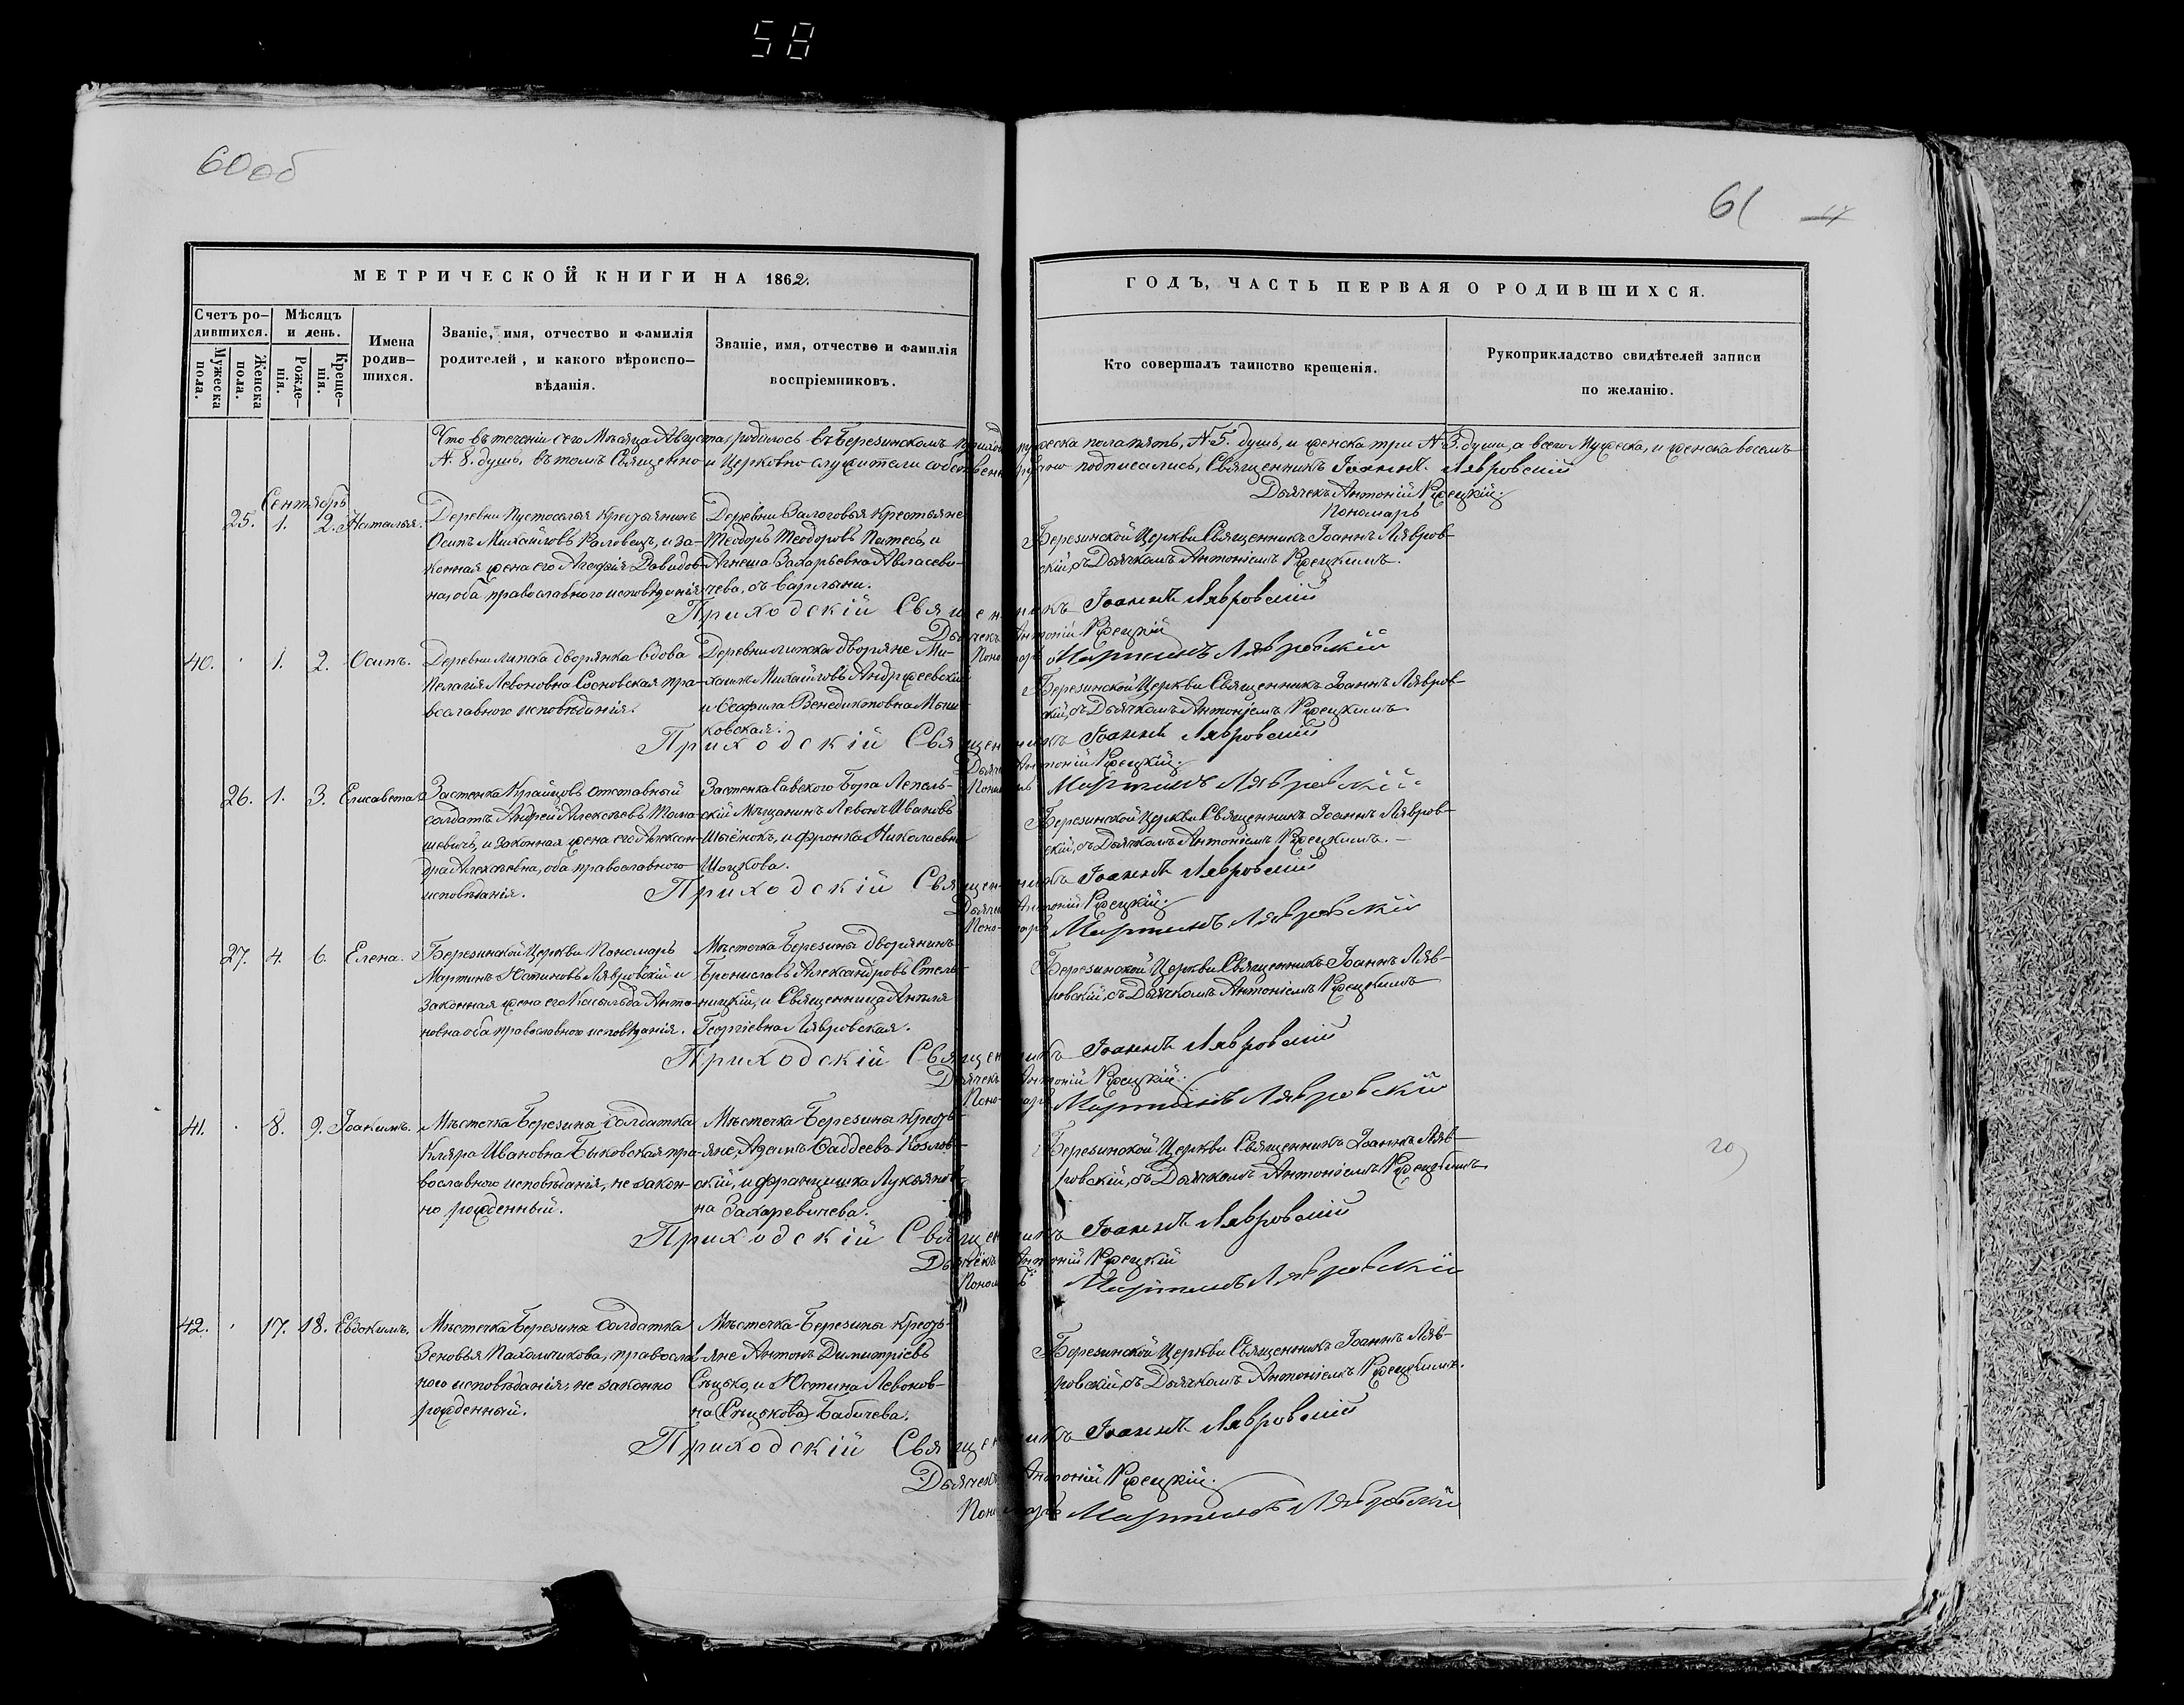 58
60об
61
МЕТРИЧЕСКОЙ КНИГИ НА 1862.
ГОДЪ, ЧАСТЬ ПЕРВАЯ О РОДИВШИХСЯ.
Счетъ ро-
дившихся.
Мужеска
пола.
Женска
пола.
Мѣсяцъ
и день.
Рожде-
нія.
Креще-
нія.
Имена
родив-
шихся.
Званіе, имя, отчество и фамилія
родителей, и какого вѣроиспо-
вѣданія.
Званіе, имя, отчество и фамилія
воспріемниковъ.
Кто совершалъ таинство крещенія.
Рукоприкладство свидѣтелей записи
по желанію.
Что въ теченіи сего Мѣсяца Августа, родилось въ Березинскомъ приходѣ мужеска пола пять, №5. душъ, и женска три №3. души, а всего Мужеска, и женска восемь
№. 8. душъ, въ томъ Священно и Церковно-служители собственноручно подписались, Священникъ Іоаннъ Лявровскій
Дьячекъ Антоній Ржецкій.
Пономарь
Сентябрь
25. 1. 2. Наталья.
Деревни Пустоселья Крестьянинъ
Осипъ Михайловъ и за-
конная жена его Агафія Давидов-
на, оба православного исповѣданія
Деревни Крестьяне
Теодоръ Теодоровъ и
Агнеша Захарьевна Авласеви-
чева, съ
Березинской Церкви Священникъ Іоаннъ Лявров-
скій, съ Дьячкомъ Антоніемъ Ржецкимъ.
Приходскій Священникъ Іоаннъ Лявровскій
Дьячекъ Антоній Ржецкій
Пономарь Мартинъ Лявровскій
40. 1. 2. Осипъ.
Деревни Липска дворянка вдова
Пелагія Левоновна Сосновская пра-
вославного исповѣданія.
Деревни Липска дворяне Ми-
хаилъ Михайловъ Андржеевскій
и Венедиктовна Мыш-
ковская.
Березинской Церкви Священникъ Іоаннъ Лявров-
скій, съ Дьячкомъ Антоніемъ Ржецкимъ.
Приходскій Священникъ Іоаннъ Лявровскій
Дьячекъ Антоній Ржецкій.
Пономарь Мартинъ Лявровскій.
26. 1. 3. Елисавета.
Застенка Крайцовъ отставный
солдатъ Андрей Алексѣевъ Тома-
шевичъ, и законная жена его Алексан-
дра Алексѣевна, оба православного
исповѣданія.
Застенка Савского Бора Лепель-
скій Мѣщанинъ Левонъ Ивановъ
и Фронка Николаевна
Березинской Церкви Священникъ Іоаннъ Лявров-
скій, съ Дьячкомъ Антоніемъ Ржецкимъ.
Приходскій Священникъ Іоаннъ Лявровскій
Дьячекъ Антоній Ржецкій.
Пономарь Мартинъ Лявровскій
27. 4. 6. Елена.
Березинской Церкви Пономарь
Мартинъ Юстиновъ Лявровскій и
законная жена его Касильда Анто-
новна оба православного исповѣданія.
Мѣстечка Березины дворянинъ
Брониславъ Александровъ Стель-
ницкій, и Священница Анеля
Георгіевна Лявровская.
Березинской Церкви Священникъ Іоаннъ Ляв-
ровскій, съ Дьячкомъ Антоніемъ Ржецкимъ
Приходскій Священникъ Іоаннъ Лявровскій
Дьячекъ Антоній Ржецкій.
Пономарь Мартинъ Лявровскій
41. 8. 9. Іоакимъ.
Мѣстечка Березина Солдатка
Кляра Ивановна Быковская пра-
вославного исповѣданія, не закон-
но рожденный.
Мѣстечка Березины Кресть-
яне, Адамъ Фаддеевъ Козлов-
скій, и Францишка Лукьянов-
на Захаревичева.
Березинской Церкви Священникъ Іоаннъ Ляв-
ровскій, съ Дьячкомъ Антоніемъ Ржецкимъ.
Приходскій Священникъ Іоаннъ Лявровскій
Дьячекъ Антоній Ржецкій
Пономарь Мартинъ Лявровскій
42. 17. 18. Евдокимъ.
Мѣстечка Березина Солдатка
Зеновья Пахомчикова, православ-
ного исповѣданія, не законно
рожденный.
Мѣстечка Березины Кресть-
яне Антонъ Димитріевъ
Сѣцько, и Юстина Левонов-
на (Сѣцькова) Бабичева.
Березинской Церкви Священникъ Іоаннъ Ляв-
ровскій, съ Дьячкомъ Антоніемъ Ржецкимъ.
Приходскій Священникъ Іоаннъ Лявровскій
Дьячекъ Антоній Ржецкій.
Пономарь Мартинъ Лявровскій